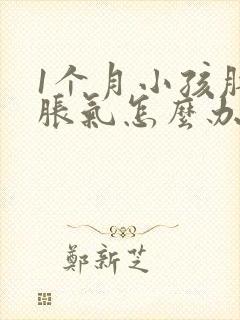 1个月小孩
脹氣怎麼办
鄭新芝